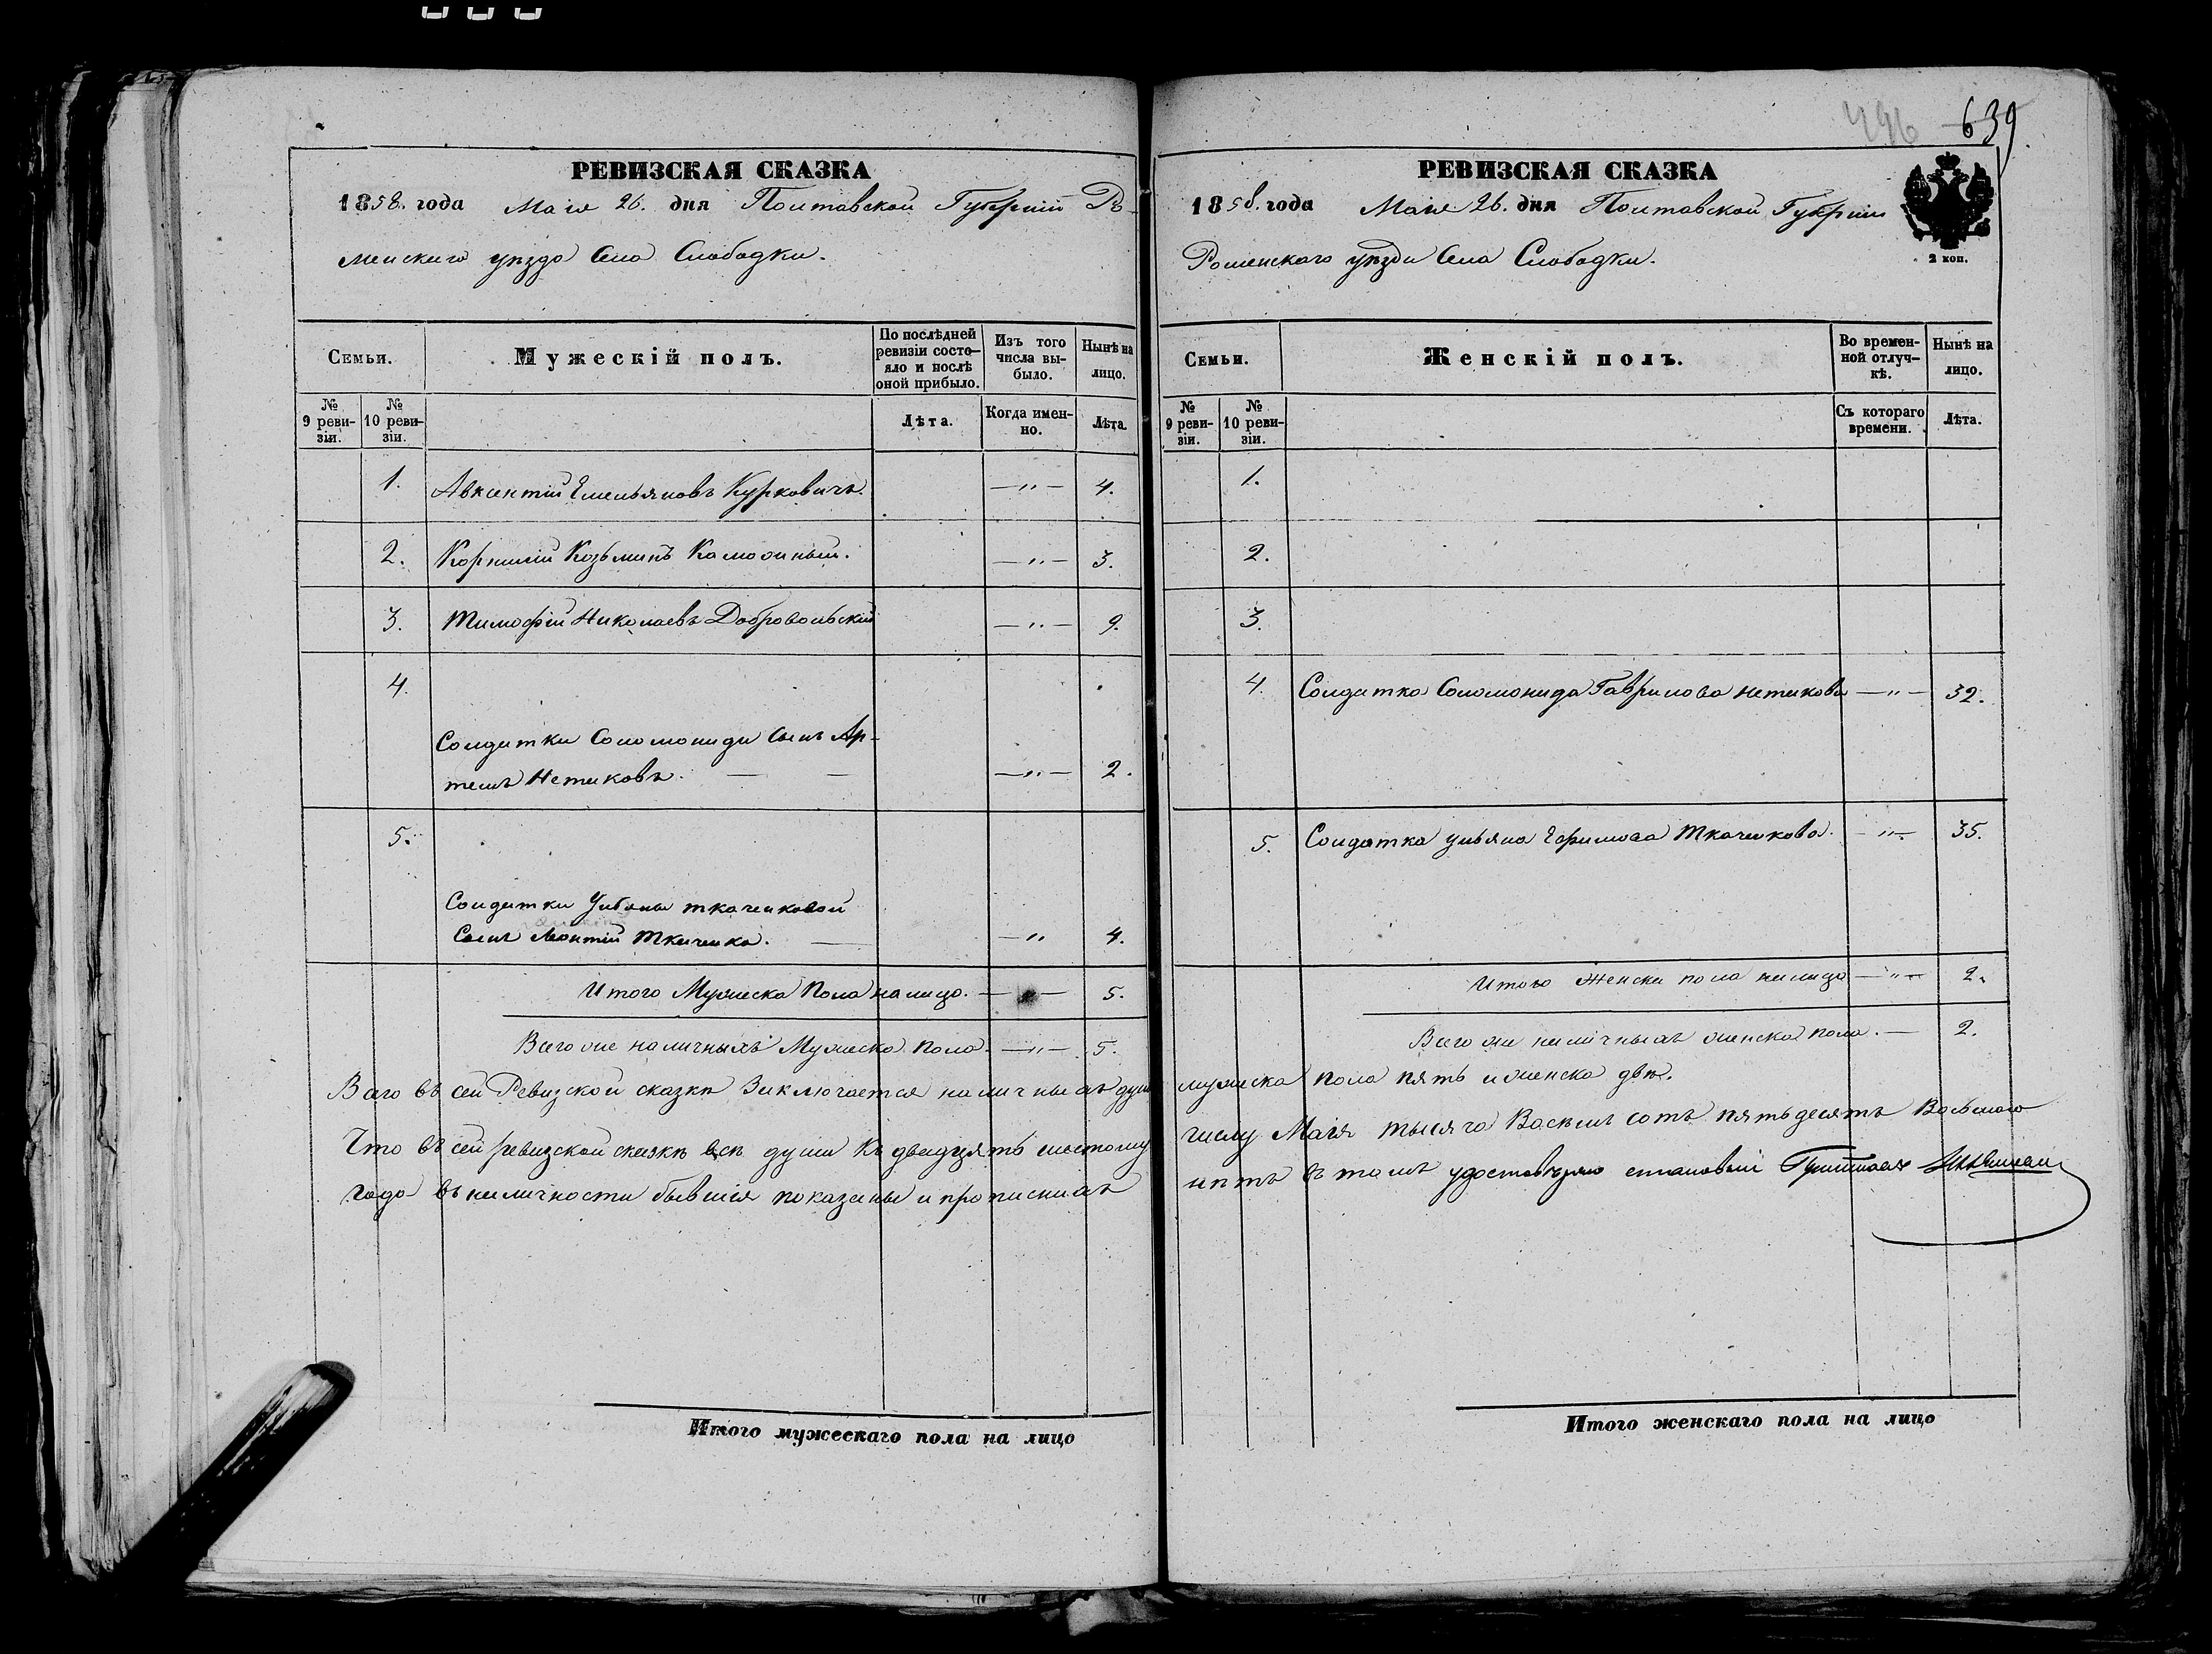 496 639
РЕВИЗСКАЯ СКАЗКА
1858. года Маія 26. дня Полтавской Губерніи Ро-
менскаго уѣзда Села Слободки.
Семьи.
Мужескій полъ.
По послѣдней ревизіи состо-яло и послѣ оной прибыло.
Изъ того числа вы-было.
Нынѣ на лицо.
№ 9 реви-зіи.
№ 10 реви-зіи.
Лѣта.
Когда имен-но.
Лѣта.
1. Авксентій Емельяновъ Курковичъ. —"— 4.
2. Корнилій Козьминъ —"— 3.
3. Тимофій Николаевъ Добровольскій —"— 9.
4.
Солдатки Соломониды сынъ Ар-
темъ Нетиковъ. —"— 2.
5.
Солдатки Ульяны Ткаченковой
сынъ Леонтій Ткаченко. —" 4.
Итого Мужеска Пола на лицо. — — 5.
Всего же наличныхъ Мужеска Пола. —"— 5.
Всего въ сей Ревизской сказкѣ Заключается наличныхъ душъ
Что въ сей ревизской сказкѣ всѣ души къ двадцать шестому
года въ наличности бывшія показаны и прописныхъ
Итого мужескаго пола на лицо
РЕВИЗСКАЯ СКАЗКА
1858. года Маія 26. дня Полтавской Губерніи
Роменскаго уѣзда Села Слободки.
2 коп.
Семьи.
Женскій полъ.
Во времен-ной отлуч-кѣ.
Нынѣ на лицо.
№ 9 реви-зіи.
№ 10 реви-зіи.
Съ котораго времени.
Лѣта.
1.
2.
3.
4. Солдатка Соломонида Гаврилова Нетикова —"— 32.
5. Солдатка Ульяна Ефимова Ткаченкова. —"— 35.
Итого Женска пола налицо —"— 2.
Всего же наличныхъ женска пола. — 2.
мужеска пола пять и женска двѣ.
числу Маія тысяча Восемь сотъ пятьдесятъ Восьмаго
нѣтъ въ томъ удостовѣряю становый
Итого женскаго пола на лицо